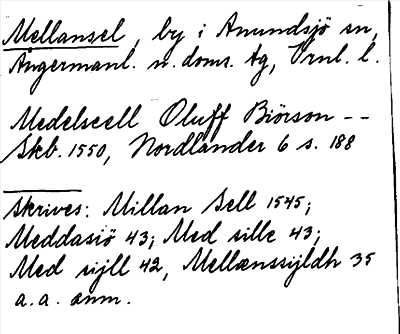 Mellansel, by i Anundsjö sn,
Ångermanl. n. doms. tg, Vrnl. l.
Medelseell Oluff Biörson --
Skb. 1550, Nordlander 6 s. 188
skrives: Millan Sell 1545;
Meddasiö 43; Med sille 43;
Med sijll 42, Mellænssijldh 35
a.a. anm.